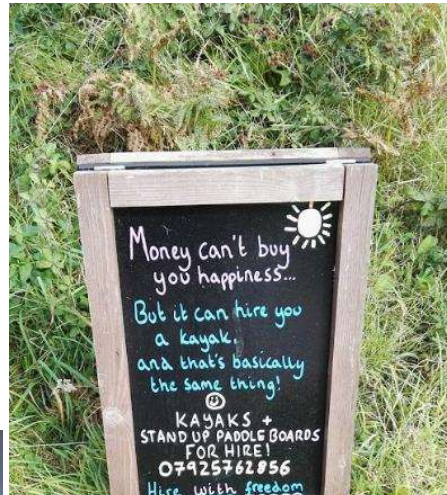 Money can't buy
you happiness...
But it can hire you
a kayak,
and that's basically
the same thing!
KAYAKS +
STAND UP PADDLE BOARDS
FOR HIRE!
07925762856
Hire with freedom